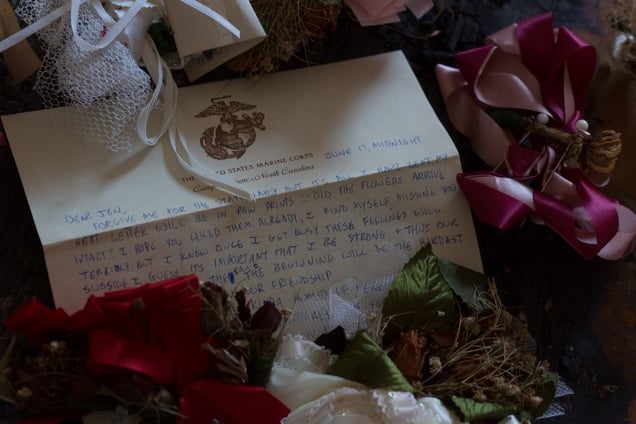 THE UNITED STATES MARINE CORPS
Camp Lejeune, North Carolina
JUNE 17, MIDNIGHT
DEAR JEN,
FORGIVE ME FOR THE STATIONARY BUT IT'S ALL I HAVE LEFT. MY
NEXT LETTER WILL BE IN PAW PRINTS :- DID THE FLOWERS ARRIVE
INTACT? I HOPE YOU LIKED THEM ALREADY, I FIND MYSELF MISSING YOU
TERRIBLY. BUT I KNOW ONCE I GET BUSY THESE FEELINGS WILL
SUBSIDE. I GUESS IT'S IMPORTANT THAT I BE STRONG & THUS OUR
THE BEGINNING WILL BE THE HARDEST
OUR FRIENDSHIP
HUMID UP